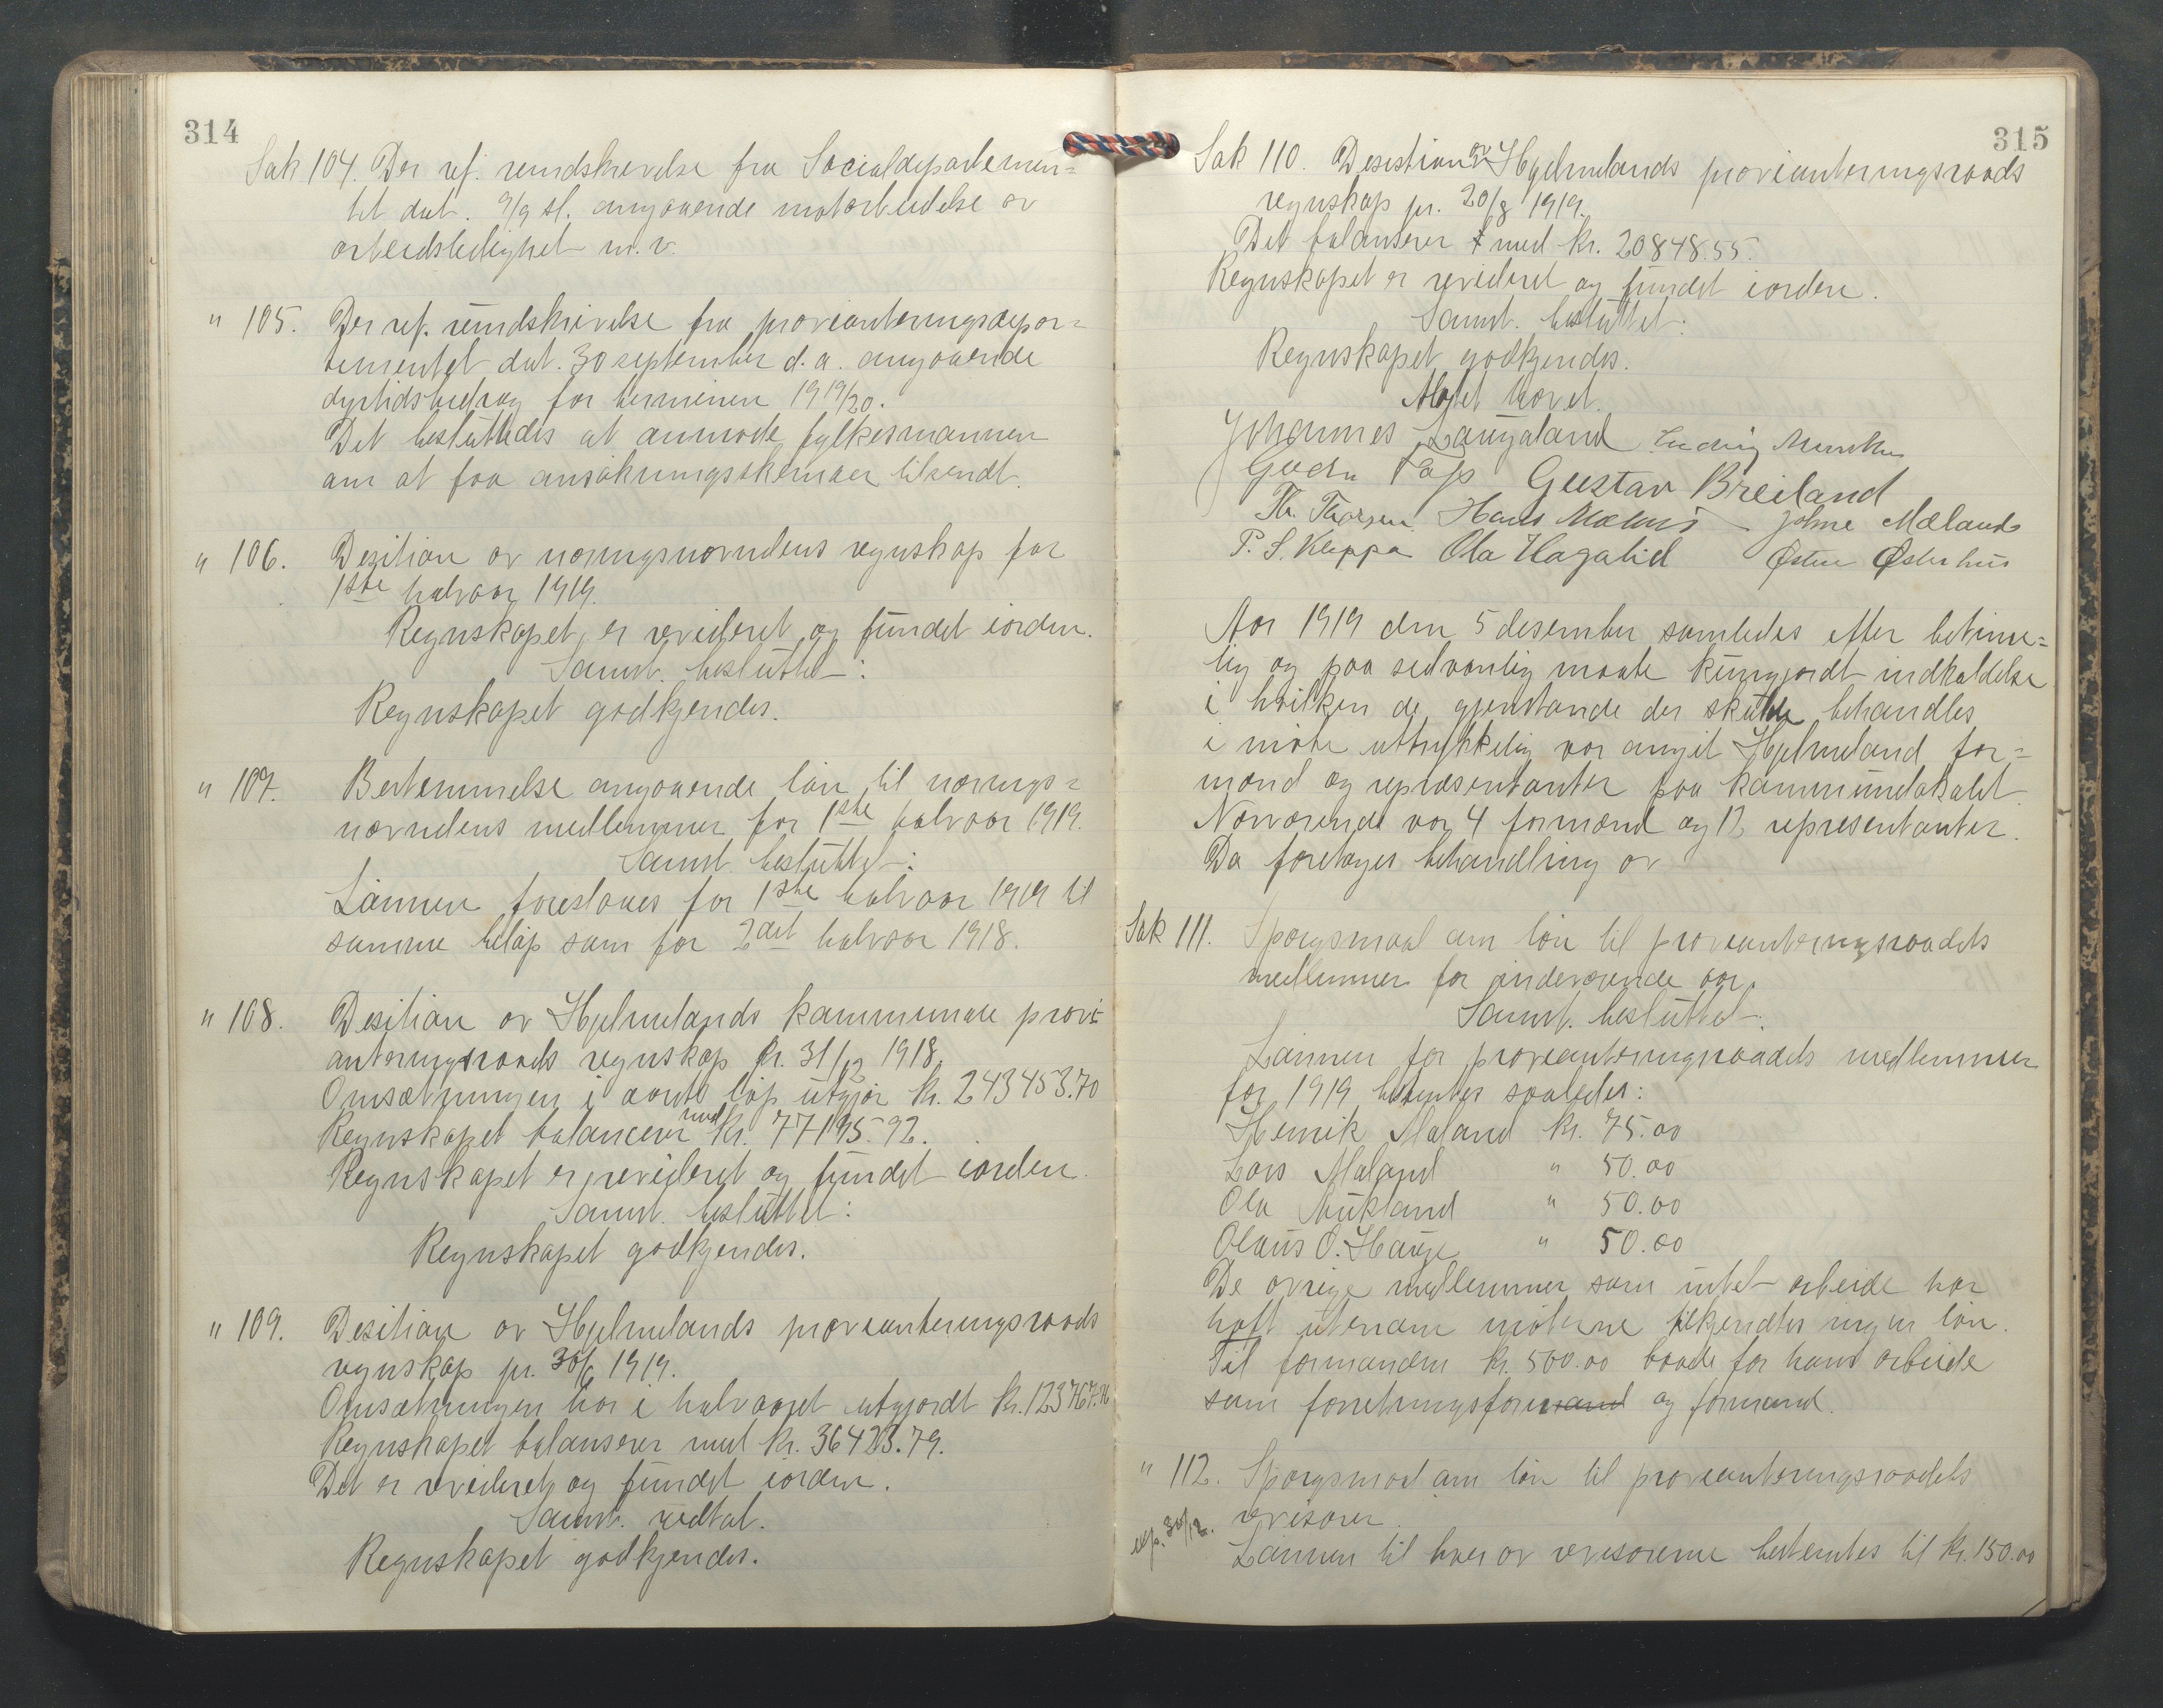 314
Sak 104. Der ref. rundskrivelse fra Socialdepartemen=
tet dat. 9/9 sl. angaaende motarbeidelse av
arbeidsledighet m.v.
" 105. Der ref. rundskrivelse fra provianteringsdepar=
tementet dat. 30 september d.a. angaaende
dyrtidsbidrag for terminen 1919/20.
Det besluttedes at anmode fylkesmannen
om at faa ansøkningsskemaer tilsendt.
" 106. Desition av næringsnævndens regnskap for
1ste halvaar 1919.
Regnskapet er revideret og fundet iorden.
Samt. besluttet:
Regnskapet godkjendes.
" 107. Bestemmelse angaaende løn til nærings=
nævndens medlemmer for 1ste halvaar 1919.
Samt. besluttet:
Lønnen foreslaaes for 1ste halvaar 1919 til
samme beløp som for 2det halvaar 1918.
" 108. Desition av Hjelmelands kommunale provi=
anteringsraads regnskap pr. 31/12 1918.
Omsætningen i aarets løp utgjør kr. 243453.70
Regnskapet balancerer med kr. 77195.92.
Regnskapet er revideret og fundet iorden.
Samt. besluttet:
Regnskapet godkjendes.
" 109. Desition av Hjelmelands provianteringsraads
regnskap pr. 30/6 1919.
Omsætningen har i halvaaret utgjordt kr. 123767.76
Regnskapet balanserer med kr. 36423.79.
Det er revideret og fundet iorden.
Samt. vedtat.
Regnskapet godkjendes.
315
Sak 110. Desistion av Hjelmelands provianteringsraads
regnskap pr. 20/8 1919.
Det balanserer med kr. 20848.55.
Regnskapet er revideret og fundet iorden.
Samt. besluttet:
Regnskapet godkjendes.
Møtet hævet.
Johannes Laugaland Ludvig Munkn
Gustav Breiland
Th. Thorsen Hans Mælands Johne Mælands
P. S. Kleppa Ola Hagalid Østen Østerhus
Aar 1919 den 5 desember samledes efter betime=
lig og paa sedvanlig maate kungjordt indkaldelse
i hvilken de gjenstande der skulde behandles
i møte uttrykkelig var angit Hjelmeland for=
mænd og repræsentanter paa kommunelokalet.
Nærværende var 4 formænd og 12 representanter.
Da foretages behandling av
Sak 111. Spørgsmaal om løn til provianteringsraadets
medlemmer for indeværende aar.
Samt. besluttet:
Lønnen for provianteringsraadets medlemmer
for 1919 bestemtes saaledes:
Henrik Mæland kr. 75.00
Lars Mæland " 50.00
Ola Aukland " 50.00
Olaus O. Hauge " 50.00
De øvrige medlemmer som intet arbeide har
haft utenom møterne tilkjendtes ingen løn.
Til formanden kr. 500.00 baade for hans arbeide
som forretningsfører og formand.
" 112. Spørgsmaal om løn til provianteringsraadets
revisorer.
exp. 30/12.
Lønnen til hver av revisorerne bestemtes til kr. 150.00